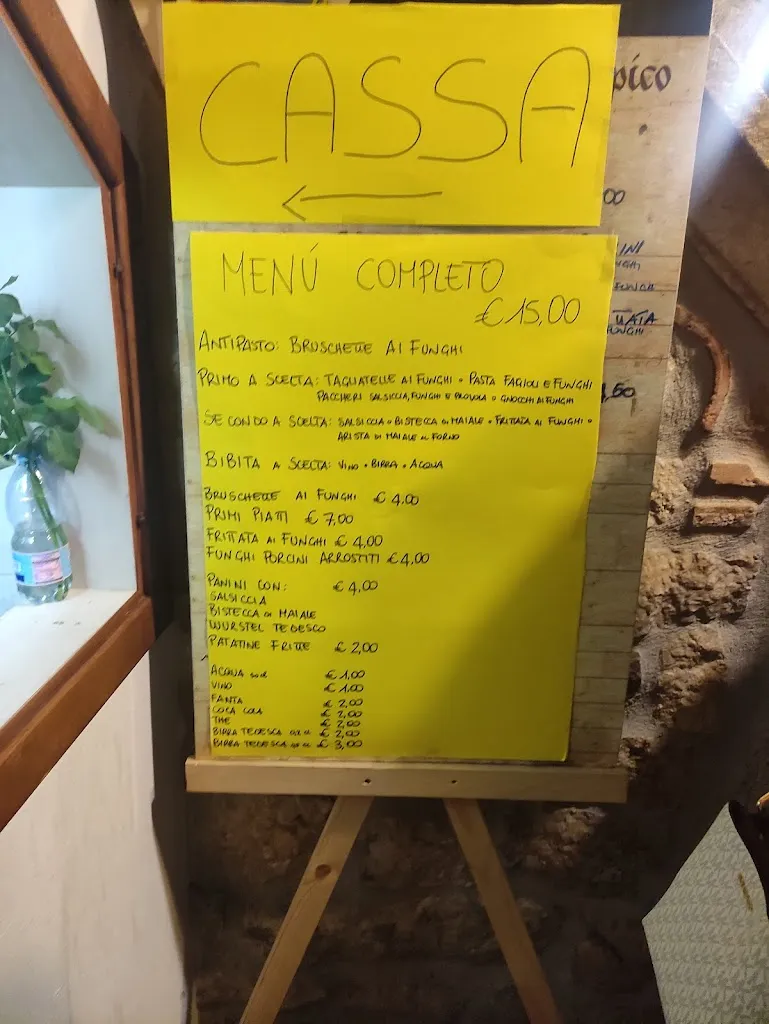 CASSA
←
MENÚ COMPLETO
€ 15,00
ANTIPASTO: BRUSCHETTE AI FUNGHI
PRIMO A SCELTA: TAGLIATELLE AI FUNGHI • PASTA FAGIOLI E FUNGHI
PACCHERI SALSICCIA, FUNGHI E PROVOLA • GNOCCHI AI FUNGHI
SECONDO A SCELTA: SALSICCIA • BISTECCA DI MAIALE • FRITTATA AI FUNGHI •
ARISTA DI MAIALE AL FORNO
BIBITA A SCELTA: VINO • BIRRA • ACQUA
BRUSCHETTE AI FUNGHI € 4,00
PRIMI PIATTI € 7,00
FRITTATA AI FUNGHI € 4,00
FUNGHI PORCINI ARROSTITI € 4,00
PANINI CON: € 4,00
SALSICCIA
BISTECCA DI MAIALE
WURSTEL TEDESCO
PATATINE FRITTE € 2,00
ACQUA € 1,00
VINO € 1,00
FANTA € 2,00
COCA COLA € 2,00
THE € 2,00
BIRRA TEDESCA € 2,00
BIRRA TEDESCA € 3,00
pico
00
INI
FUNGHI
UATA
FUNGHI
,50